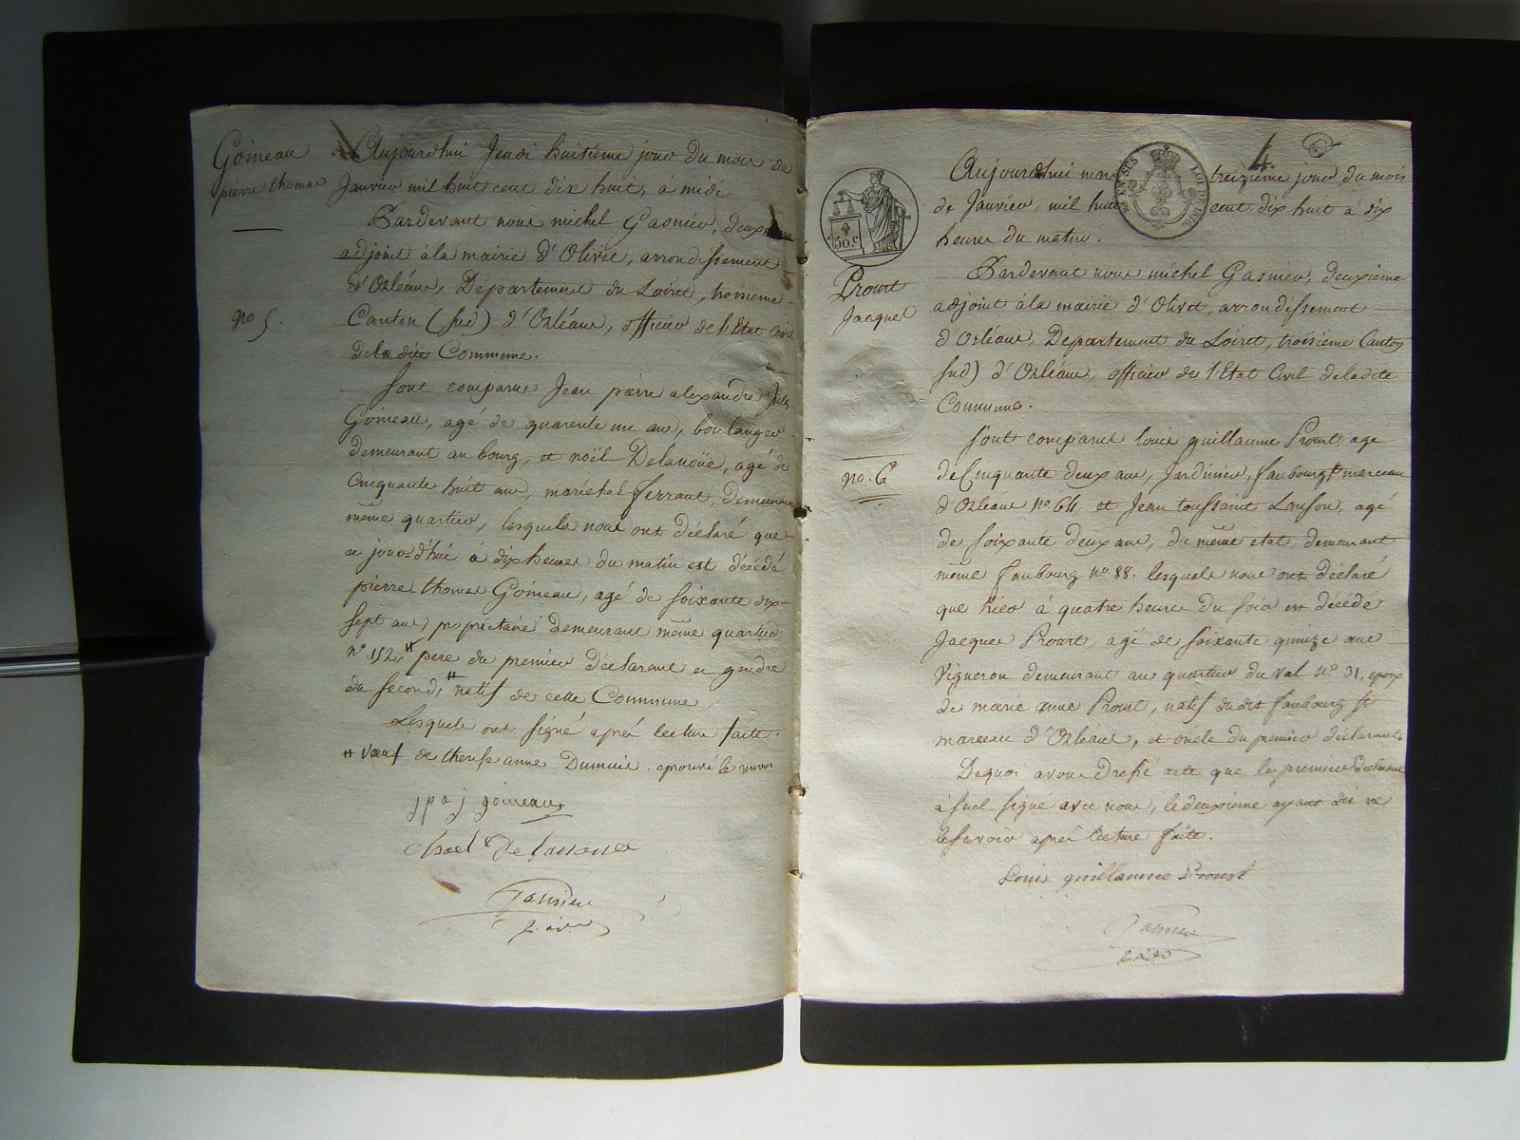 Goineau
pierre thomas
no 5.
Aujourdhui Jeudi huitieme jour du mois de
Janvier mil huit cent dix huit, à midi
Pardevant nous michel Gasnier, deuxieme
adjoint à la mairie d'Olivet, arrondissement
d'Orléans, Département du Loiret, troisieme
Canton (Sud) d'Orléans, officier de l'Etat Civil
de la dite Commune.
Sont comparus Jean pierre alexandre
Goineau, agé de quarente un ans, boulanger
demeurant au bourg, et noël Delanoüe, agé de
Cinquante huit ans, maréchal ferrant, demeurant
même quartier, lesquels nous ont déclaré que
ce jourd'hui à dix heures du matin est décédé
pierre thomas Goineau, agé de soixante dix-
sept ans, propriétaire demeurant même quartier
n° 152, # pere du premier déclarant et
du second, # natif de cette Commune
Lesquels ont signé après lecture faite.
# veuf de therese anne approuvé le renvoi
j p a j goineau
Noel De lanoue
Gasnier
4.
50c
Prout
Jacques
no. 6
Aujourdhui treizieme jour du mois
de Janvier, mil huit cent dix huit à dix
heures du matin.
Pardevant nous michel Gasnier, deuxieme
adjoint à la mairie d'Olivet, arrondissement
d'Orléans, Département du Loiret, troisieme Canton
Sud) d'Orléans, officier de l'Etat Civil de la dite
Commune.
Sont comparus louis guillaume Prout, agé
de Cinquante deux ans, Jardinier, faubourg st marceau
d'Orléans no 64 et Jean toussaint agé
de soixante deux ans, du même etat, demeurant
même faubourg no 88. lesquels nous ont déclaré
que hier à quatre heures du soir est décédé
Jacques Prout, agé de soixante quinze ans
Vigneron demeurant au quartier du val N° 31, epoux
de marie anne Prout, natif du dit faubourg st
marceau d'Orléans, et oncle du premier déclarant
De quoi avons dressé acte que le premier déclarant
à seul signé avec nous, le deuxieme ayant dit ne
le savoir après lecture faite.
Louis guillaume Proust
Gasnier